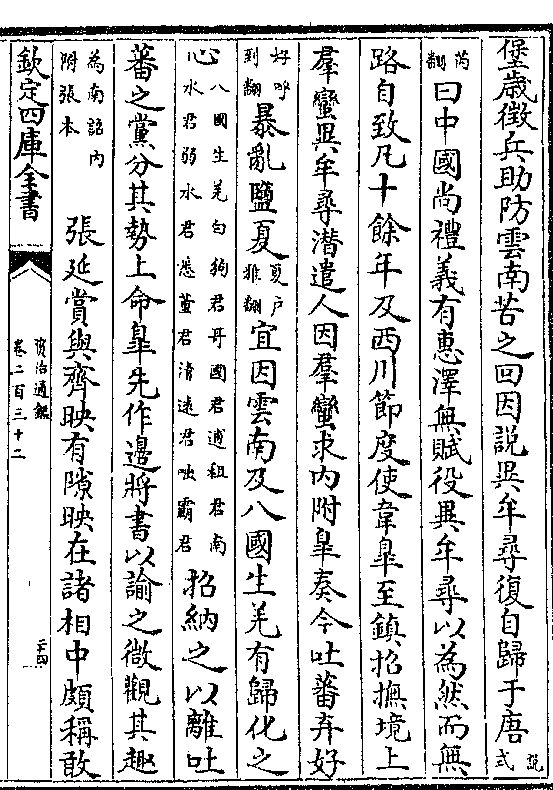 堡歳徴兵助防雲南苦之回因説異牟尋復自歸于唐說式
芮翻曰中國尚禮義有惠澤無賦役異牟尋以為然而無
路自致凡十餘年及西川節度使韋臯至鎮招撫境上
羣蠻異牟尋潜遣人因羣蠻求内附臯奏今吐蕃弃好
好呼到翻暴亂鹽夏夏户雅翻宜因雲南及八國生羌有歸化之
心八國生羌白狗君哥國君逋租君南水君弱水君悉董君清遠君咄霸君招納之以離吐
蕃之黨分其勢上命臯先作邊將書以諭之微觀其趣
為南詔内附張本　張延賞與齊映有隙映在諸相中頗稱敢
欽定四庫全書
資治通鑑
卷二百三十二
二十四